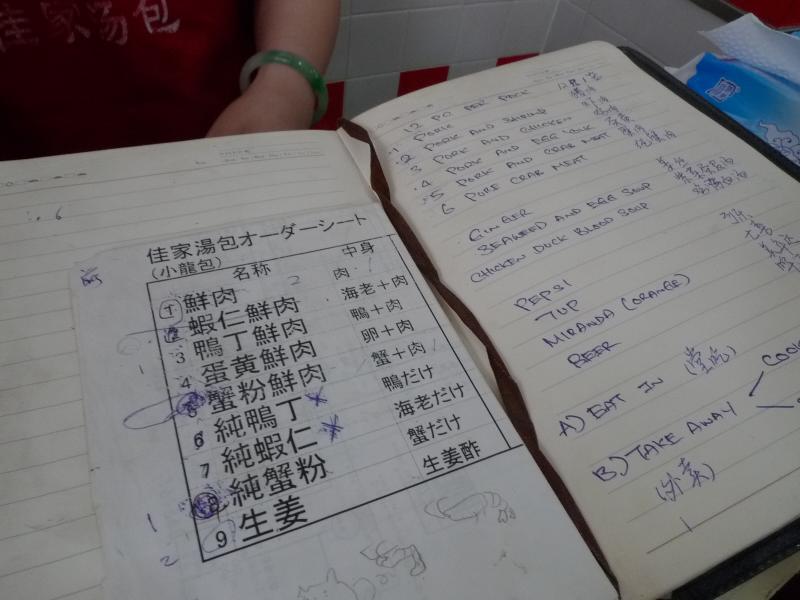 佳家湯包
佳家湯包オーダーシート
(小龍包)
名称 中身
1 鮮肉 肉
蝦仁鮮肉 海老+肉
3 鴨丁鮮肉 鴨+肉
4 蛋黄鮮肉 卵+肉
5 蟹粉鮮肉 蟹+肉
6 純鴨丁 鴨だけ
7 純蝦仁 海老だけ
8 純蟹粉 蟹だけ
9 生姜 生姜酢
12 PC PER PACK
1 PORK
2 PORK AND SHRIMP
3 PORK AND CHICKEN
4 PORK AND EGG YOLK
5 PORK AND CRAB MEAT
6 PURE CRAB MEAT
GINGER
SEAWEED AND EGG SOUP
CHICKEN DUCK BLOOD SOUP
PEPSI
7UP
MIRANDA (ORANGE)
BEER
A) EAT IN (堂吃)
B) TAKE AWAY
(外卖)